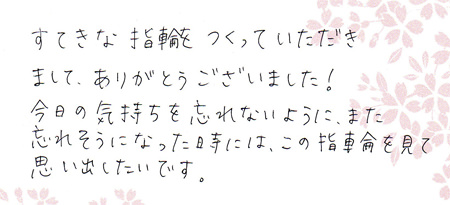 すてきな 指輪を つくっていただき
まして、ありがとうございました!
今日の気持ちを忘れないように、また
忘れそうになった時には、この指輪を見て
思い出したいです。